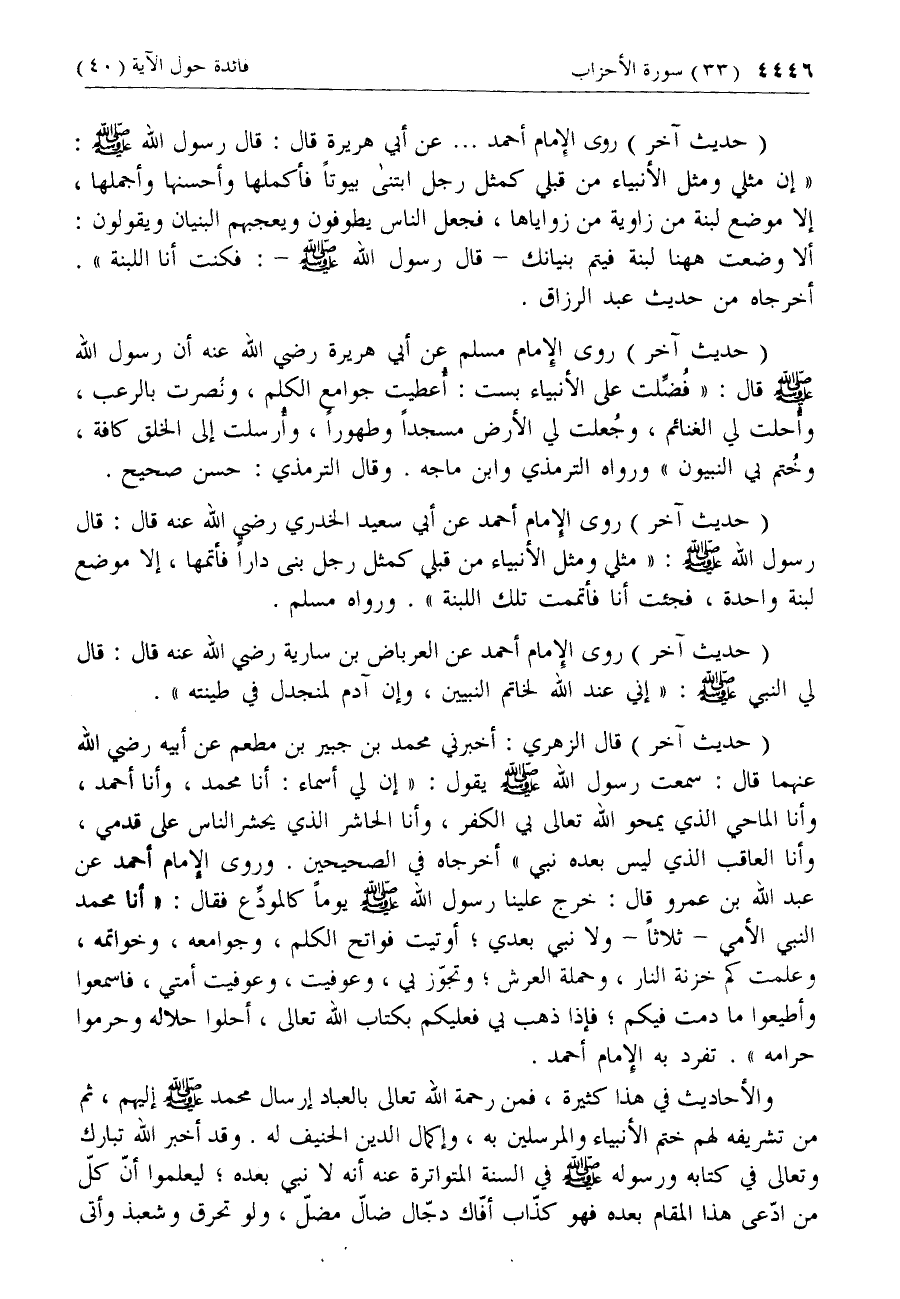 ٤٤٤٦ (٣٣) سورة الأحزاب فائدة حول الآية (٤٠)
( حديث آخر ) روى الإمام أحمد ... عن أبي هريرة قال : قال رسول الله ﷺ :
« إن مثلي ومثل الأنبياء من قبلي كمثل رجل ابتنىٰ بيوتاً فأكملها وأحسنها وأجملها ،
إلا موضع لبنة من زاوية من زواياها ، فجعل الناس يطوفون ويعجبهم البنيان ويقولون :
ألا وضعت ههنا لبنة فيتم بنيانك – قال رسول الله ﷺ – : فكنت أنا اللبنة » .
أخرجاه من حديث عبد الرزاق .
( حديث آخر ) روى الإمام مسلم عن أبي هريرة رضي الله عنه أن رسول الله
ﷺ قال : « فُضِّلت على الأنبياء بست : أُعطيت جوامع الكلم ، ونُصرت بالرعب ،
وأُحلت لي الغنائم ، وجُعلت لي الأرض مسجداً وطهوراً ، وأُرسلت إلى الخلق كافة ،
وخُتم بي النبيون » ورواه الترمذي وابن ماجه . وقال الترمذي : حسن صحيح .
( حديث آخر ) روى الإمام أحمد عن أبي سعيد الخدري رضي الله عنه قال : قال
رسول الله ﷺ : « مثلي ومثل الأنبياء من قبلي كمثل رجل بنى داراً فأتمها ، إلا موضع
لبنة واحدة ، فجئت أنا فأتممت تلك اللبنة » . ورواه مسلم .
( حديث آخر ) روى الإمام أحمد عن العرباض بن سارية رضي الله عنه قال : قال
لي النبي ﷺ : « إني عند الله لخاتم النبيين ، وإن آدم لمنجدل في طينته » .
( حديث آخر ) قال الزهري : أخبرني محمد بن جبير بن مطعم عن أبيه رضي الله
عنهما قال : سمعت رسول الله ﷺ يقول : « إن لي أسماء : أنا محمد ، وأنا أحمد ،
وأنا الماحي الذي يمحو الله تعالى بي الكفر ، وأنا الحاشر الذي يحشر الناس على قدمي ،
وأنا العاقب الذي ليس بعده نبي » أخرجاه في الصحيحين . وروى الإمام أحمد عن
عبد الله بن عمرو قال : خرج علينا رسول الله ﷺ يوماً كالمودِّع فقال : « أنا محمد
النبي الأمي – ثلاثاً – ولا نبي بعدي ؛ أوتيت فواتح الكلم ، وجوامعه ، وخواتمه ،
وعلمت كم خزنة النار ، وحملة العرش ؛ وتجوّز بي ، وعوفيت ، وعوفيت أمتي ، فاسمعوا
وأطيعوا ما دمت فيكم ؛ فإذا ذهب بي فعليكم بكتاب الله تعالى ، أحلوا حلاله وحرموا
حرامه » . تفرد به الإمام أحمد .
والأحاديث في هذا كثيرة ، فمن رحمة الله تعالى بالعباد إرسال محمد ﷺ إليهم ، ثم
من تشريفه لهم ختم الأنبياء والمرسلين به ، وإكمال الدين الحنيف له . وقد أخبر الله تبارك
وتعالى في كتابه ورسوله ﷺ في السنة المتواترة عنه أنه لا نبي بعده ؛ ليعلموا أنّ كلّ
من ادّعى هذا المقام بعده فهو كذّاب أفّاك دجّال ضالّ مضلّ ، ولو تحرق وشعبذ وأتى